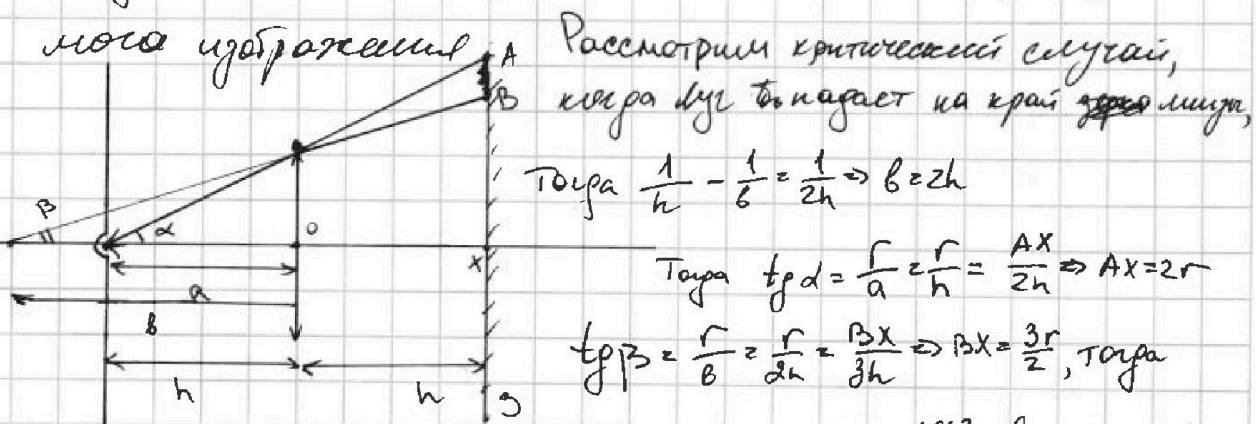 мого изображения
Рассмотрим критический случай,
когда луч попадает на край линзы,
Тогда 1/h - 1/b = 1/2h => b = 2h
Тогда tg α = r/a = r/h = AX/2h => AX = 2r
tg β = r/b = r/2h = BX/3h => BX = 3r/2, тогда
A
B
β
α
O
X
a
b
h
h
З